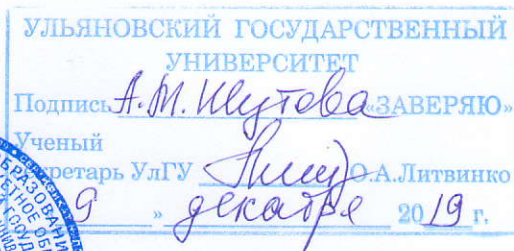 УЛЬЯНОВСКИЙ ГОСУДАРСТВЕННЫЙ
УНИВЕРСИТЕТ
Подпись А.М. Шутова «ЗАВЕРЯЮ»
Ученый
секретарь УлГУ О.А.Литвинко
9 » декабря 2019 г.